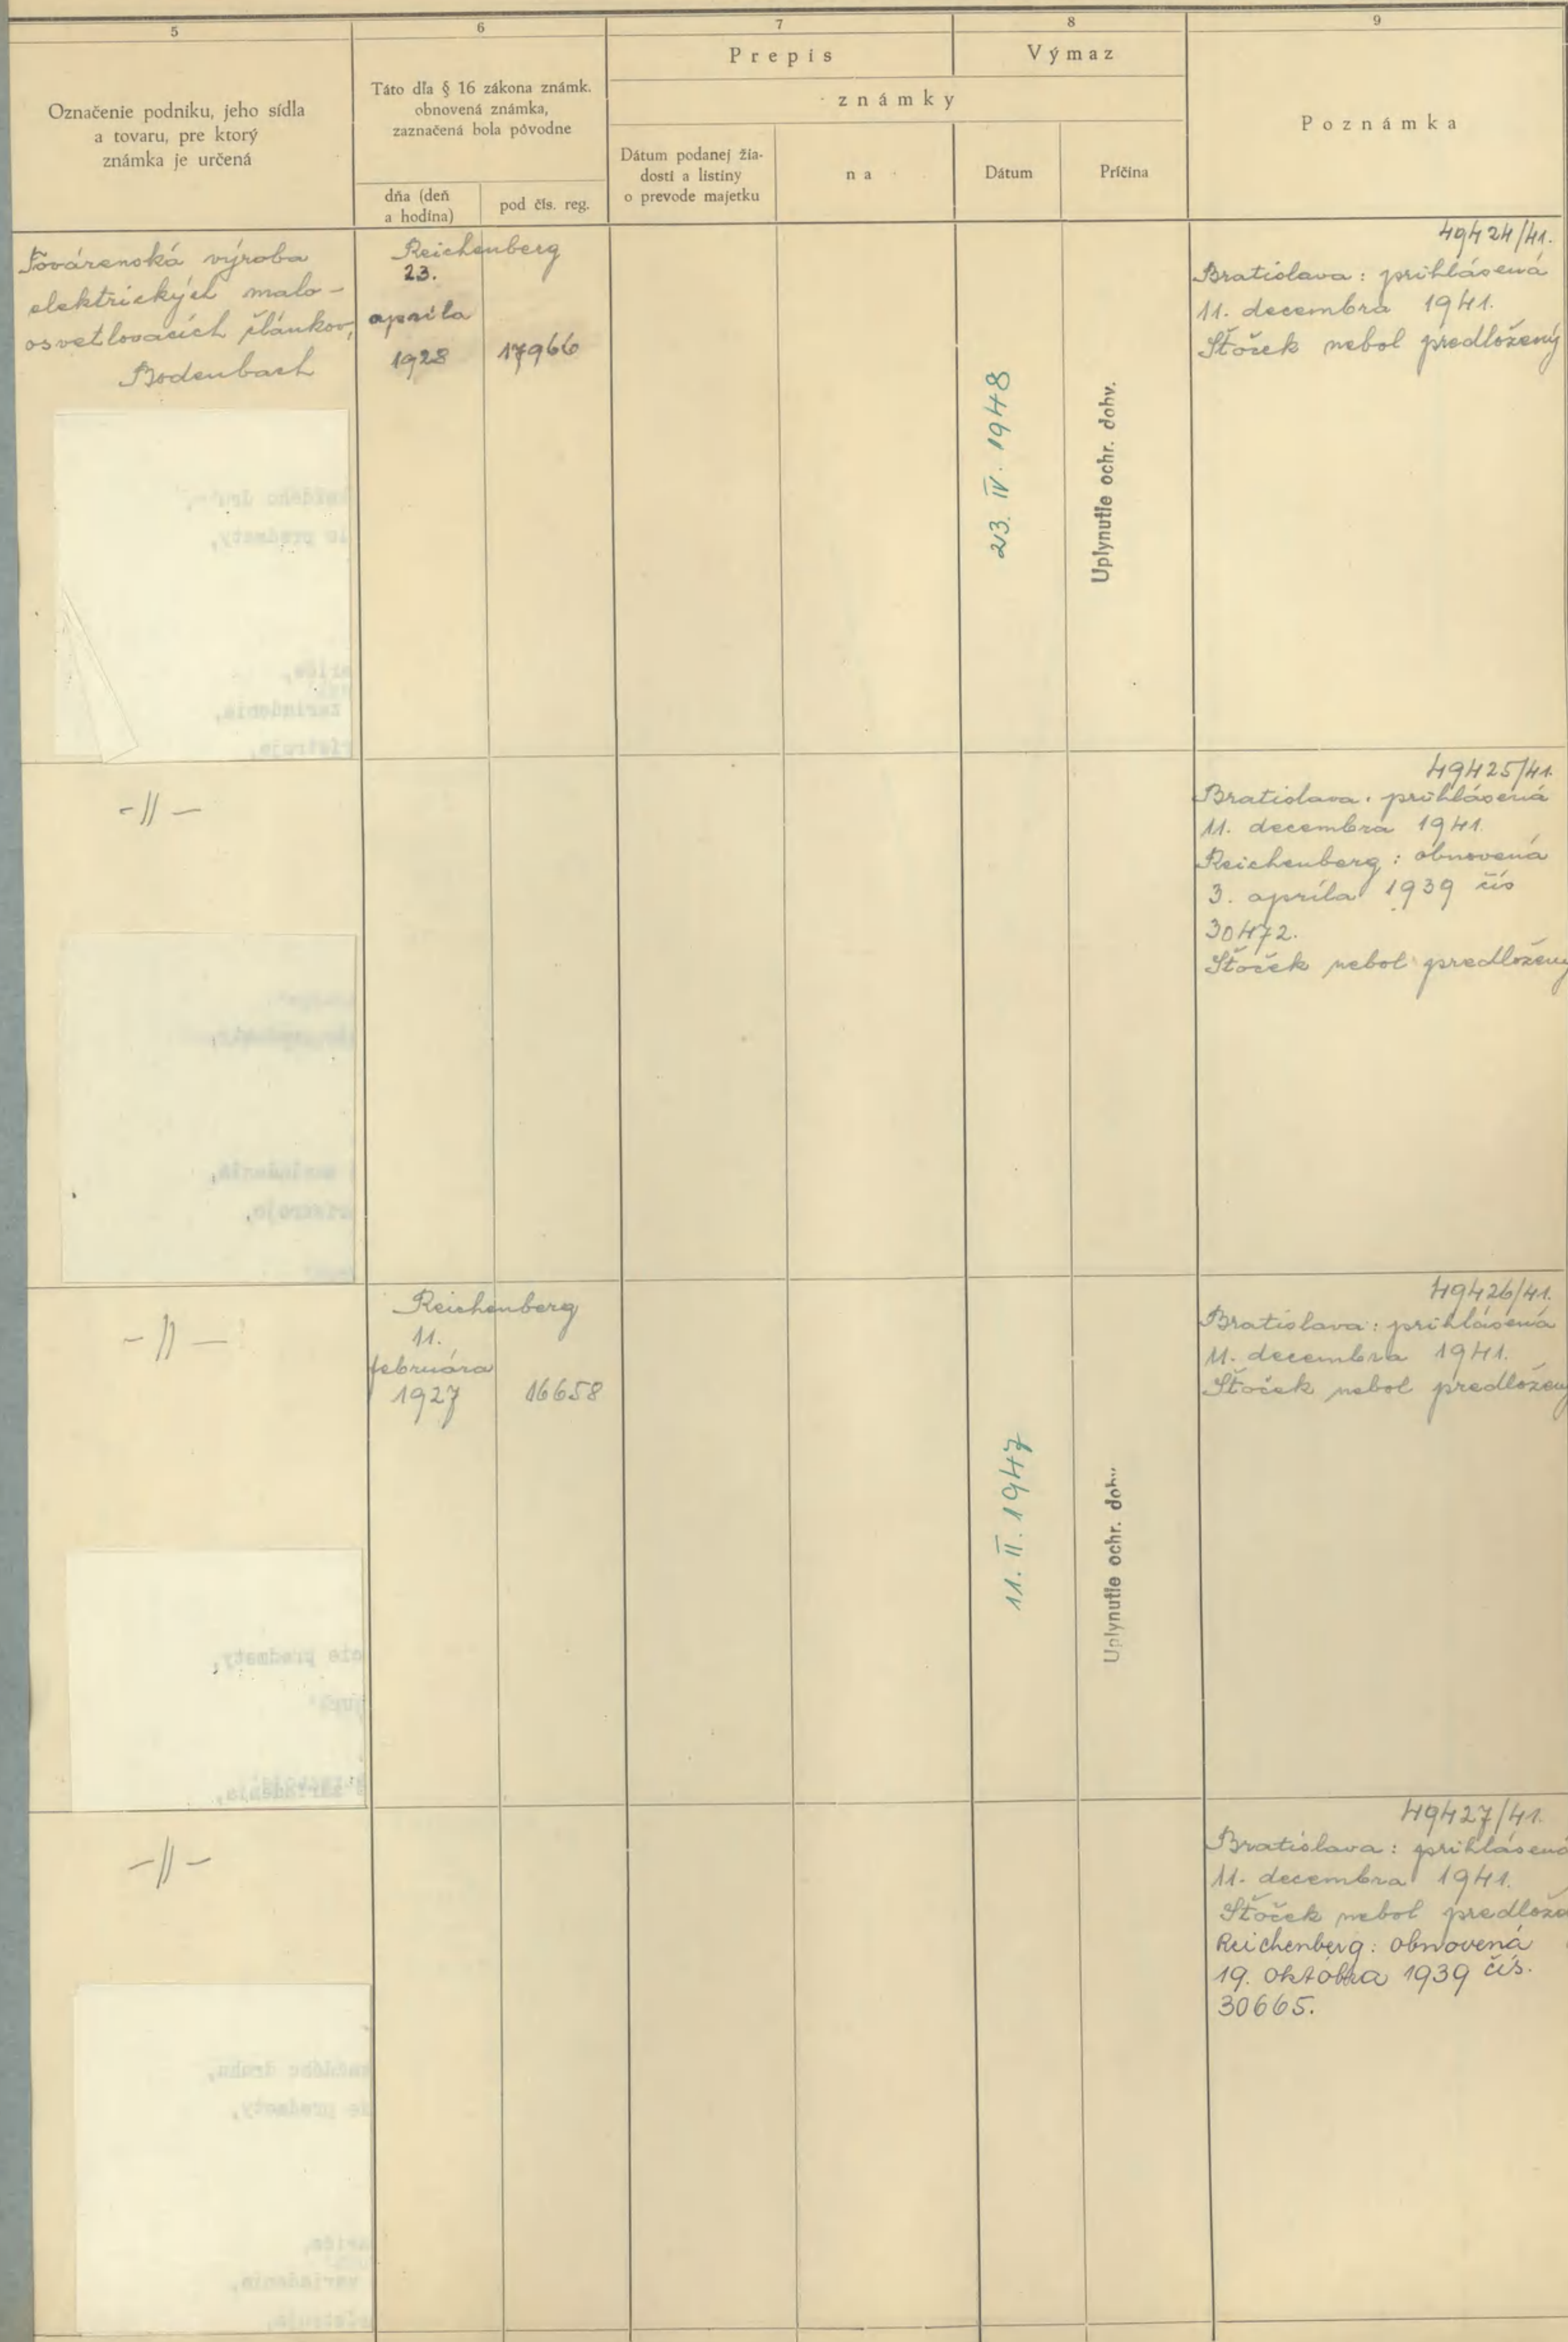 5
6
7
8
9
Označenie podniku, jeho sídla
a tovaru, pre ktorý
známka je určená
Táto dľa § 16 zákona známk.
obnovená známka,
zaznačená bola pôvodne
dňa (deň
a hodina)
pod čís. reg.
Prepis
Výmaz
známky
Dátum podanej žia-
dosti a listiny
o prevode majetku
na
Dátum
Príčina
Poznámka
Továrenská výroba
elektrických malo-
osvetlovacích článkov,
Bodenbach
Reichenberg
23.
apríla
1928
17966
23. IV. 1948
Uplynutie ochr. doby.
49424/41.
Bratislava: prihlásená
11. decembra 1941.
Štoček nebol predložený
-//-
49425/41.
Bratislava: prihlásená
11. decembra 1941.
Reichenberg: obnovená
3. apríla 1939 čís
30472.
Štoček nebol predložený
-//-
Reichenberg
11.
februára
1927
16658
11. II. 1947
Uplynutie ochr. doby
49426/41.
Bratislava: prihlásená
11. decembra 1941.
Štoček nebol predložený
-//-
49427/41.
Bratislava: prihlásená
11. decembra 1941.
Štoček nebol predlože
Reichenberg: obnovená
19. októbra 1939 čís.
30665.